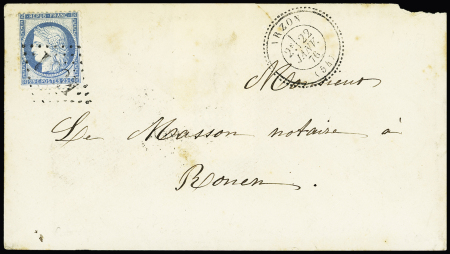 REPUB. FRANC.
POSTES
ARZON
22
JANV.
76
(54)
Monsieur
Le Masson notaire à
Rouen.